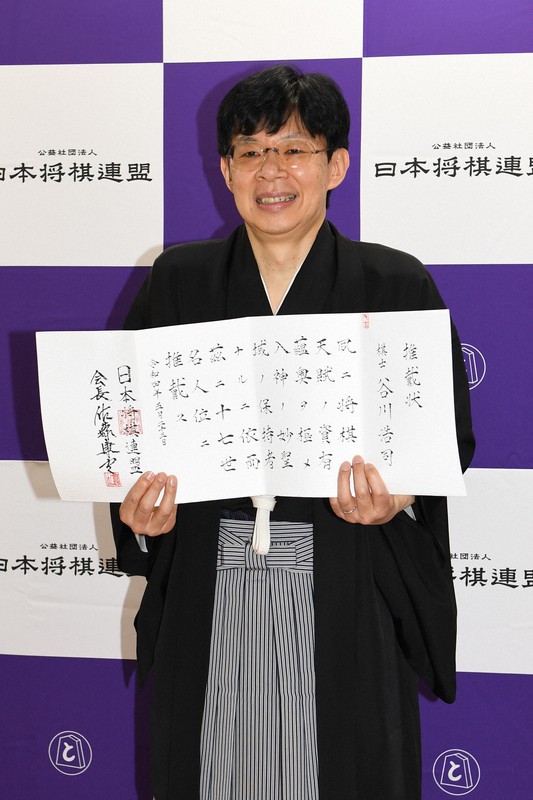 公益社団法人
日本将棋連盟
公益社団法人
日本将棋連盟
推戴状
棋士 谷川浩司
夙ニ将棋
天賦ノ資有
蘊奥ヲ極メ
入神ノ妙聖
域ノ保持者
ナルニ依而
茲ニ十七世
名人位ニ
推戴ス
令和四年五月二十三日
日本将棋連盟
会長 佐藤康光
公益社団法人
日本将棋連盟
団法人
将棋連盟
と
と